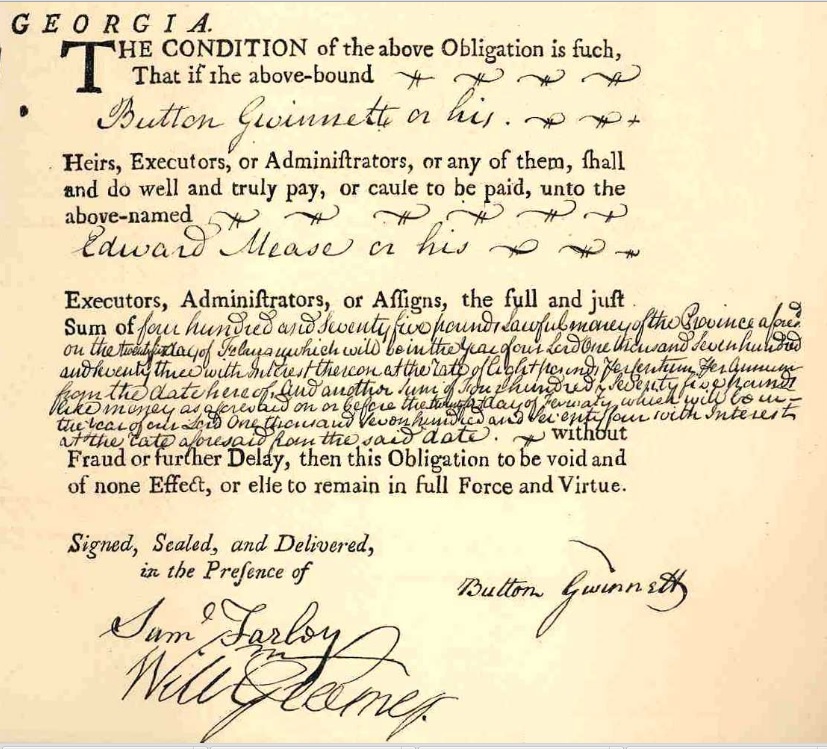 GEORGIA.
THE CONDITION of the above Obligation is ſuch,
That if the above-bound
Button Gwinnett or his.
Heirs, Executors, or Adminiſtrators, or any of them, ſhall
and do well and truly pay, or cauſe to be paid, unto the
above-named
Edward Mease or his
Executors, Adminiſtrators, or Aſſigns, the full and juſt
Sum of four hundred and Seventy five pounds Lawful money of the Province afores
on the day of which will be in the Year of our Lord One thousand Seven hundred
and seventy three with Interest thereon at the rate of Eight pounds Per Annum
from the date hereof. And another Sum of Four hundred & Seventy five pounds
like money as aforesaid on or before the day of February which will be in
the Year of our Lord One thousand Seven hundred and Seventy four with Interest
at the rate aforesaid from the said date. without
Fraud or further Delay, then this Obligation to be void and
of none Effect, or elſe to remain in full Force and Virtue.
Signed, Sealed, and Delivered,
in the Preſence of
Button Gwinnett
Saml Farley
Will